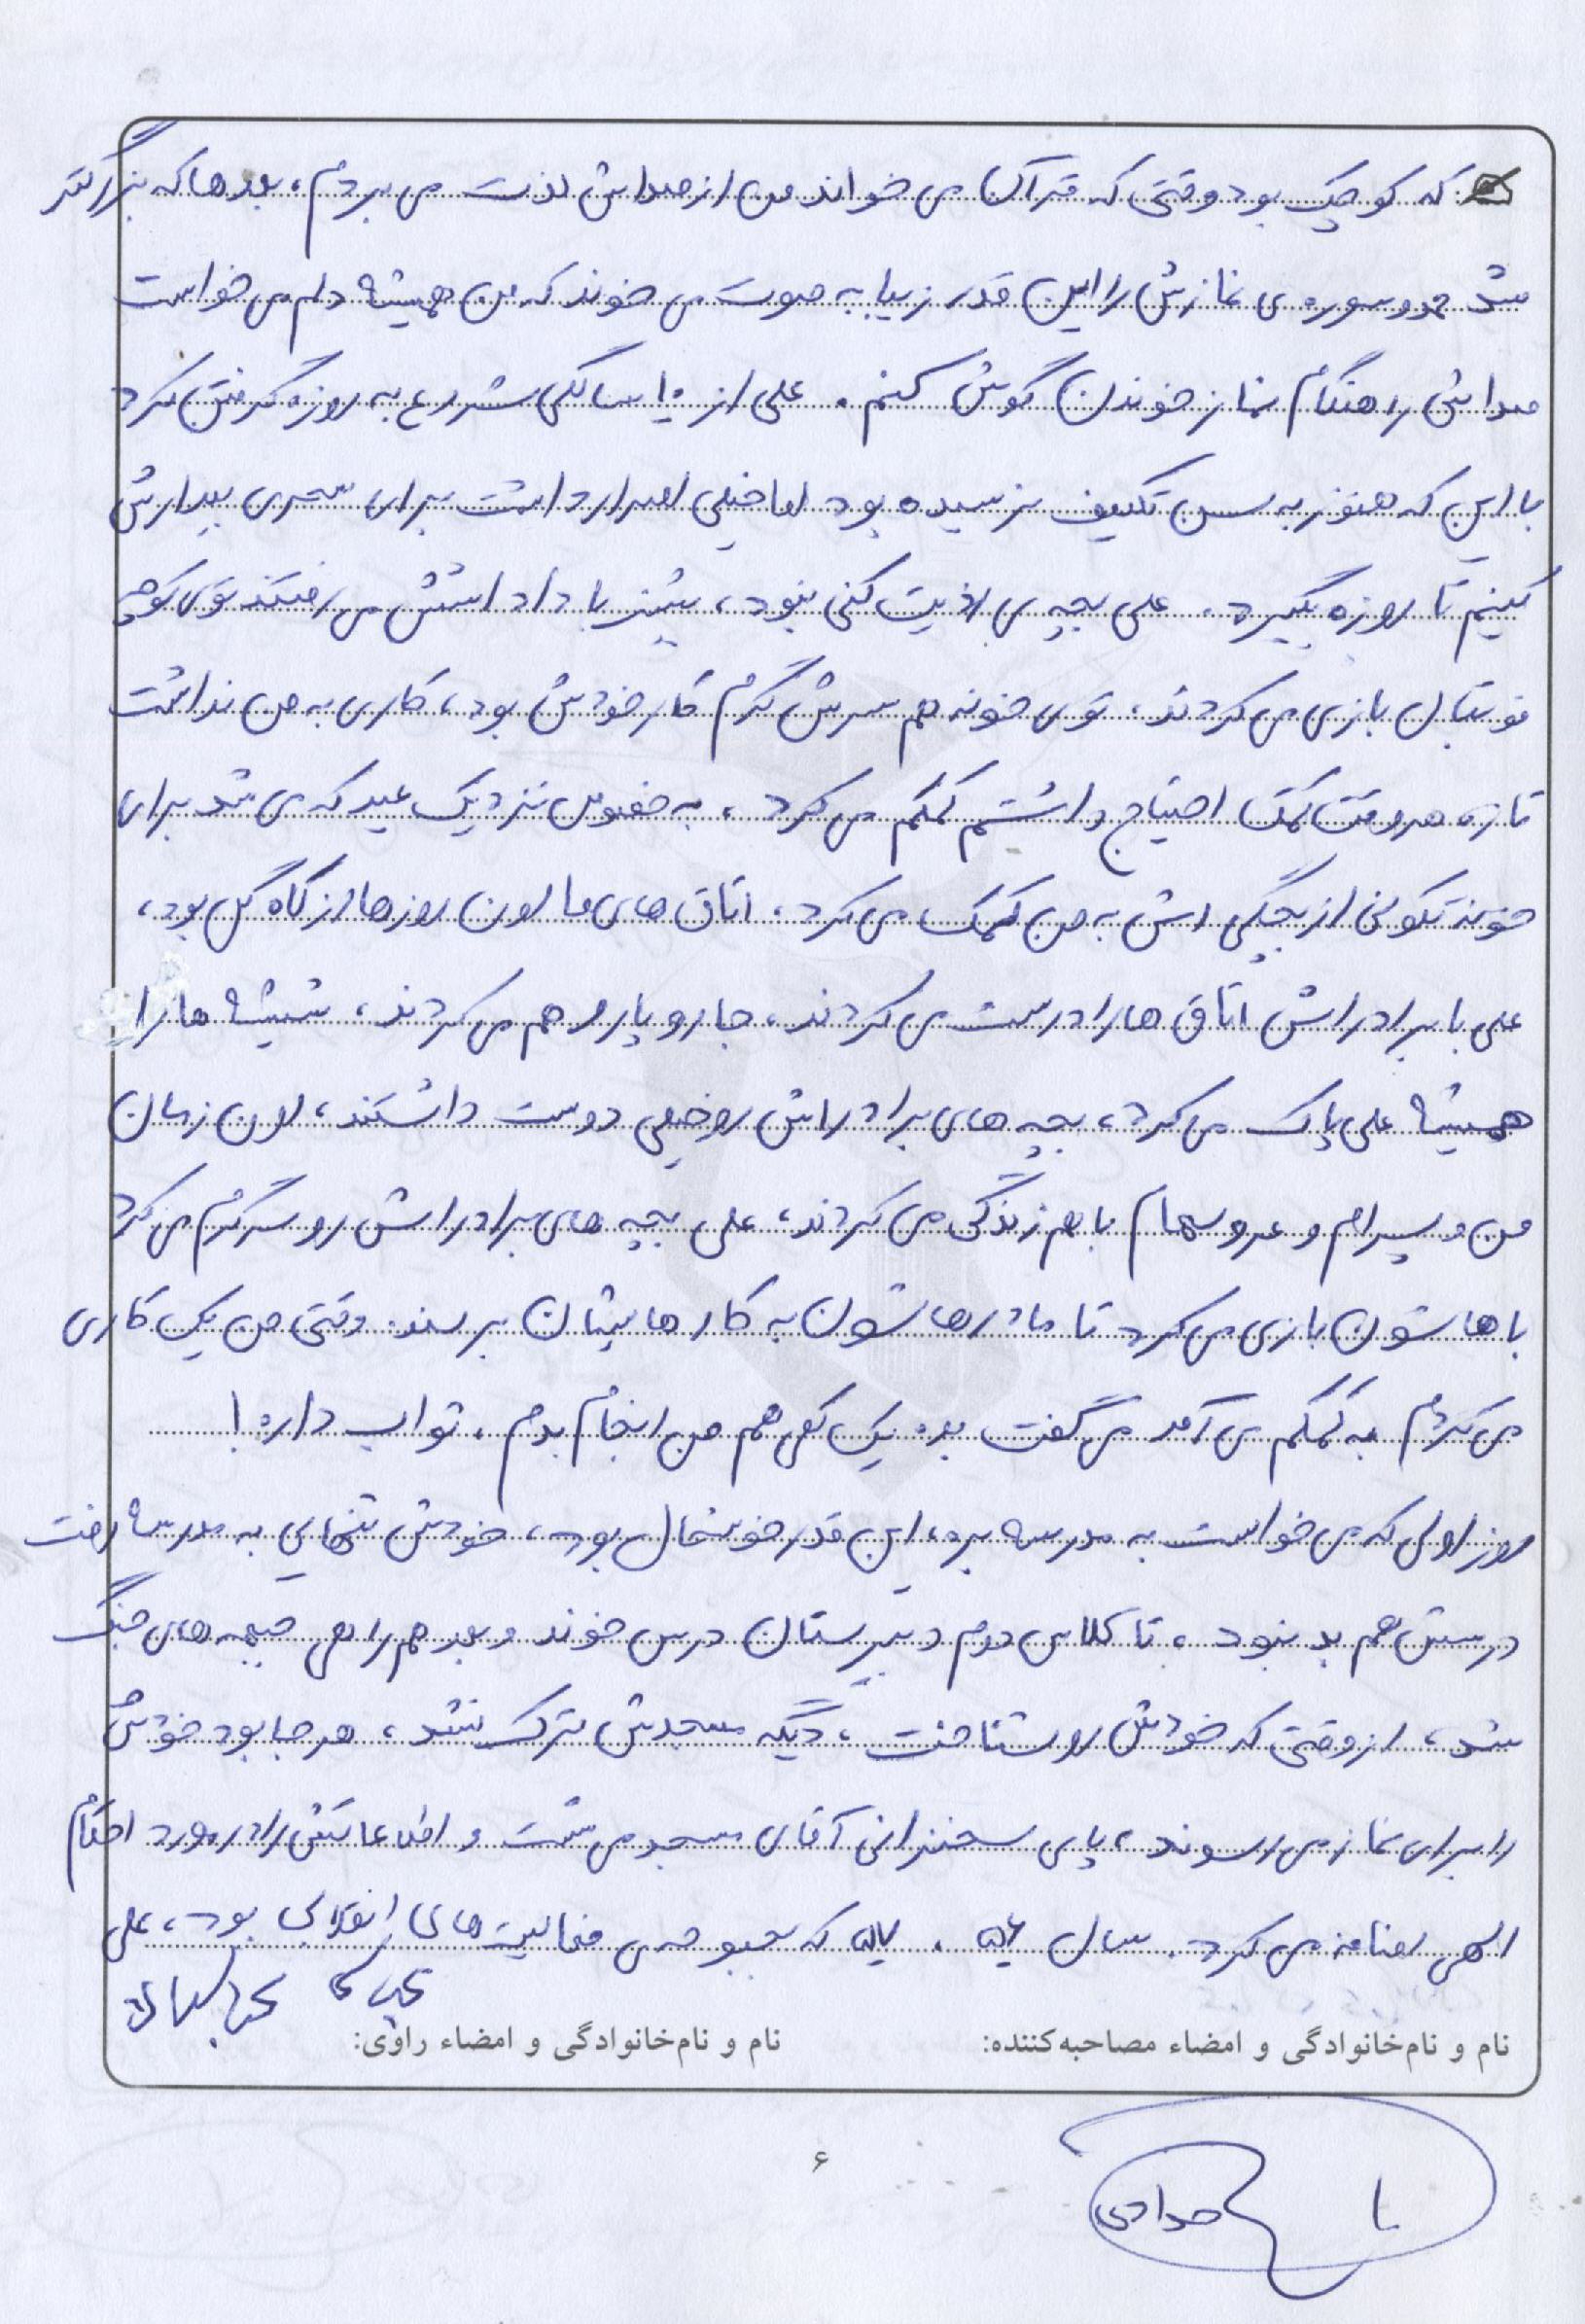 که کوچک بود وقتی که قرآن می خواند من از صدایش لذت می بردم، بعدها که بزرگتر
شد حمد و سوره ی نمازش را این قدر زیبا به صوت می خوند که من همیشه دلم می خواست
صدایش را هنگام نماز خوندن گوش کنم. علی از ۱۰ سالگی شروع به روزه گرفتن کرد
با این که هنوز به سن تکلیف نرسیده بود اما خیلی اصرار داشت برای سحری بیدارش
کنیم تا روزه بگیرد. علی بچه ی اذیت کنی نبود، بیشتر با داداشش می رفتند توی کوچه
فوتبال بازی می کردند، توی خونه هم سرش گرم کار خودش بود، کاری به من نداشت
تازه هر وقت کمک احتیاج داشتم کمکم می کرد، به خصوص نزدیک عید که می شد برای
خونه تکونی از بچگی اش به من کمک می کرد. اتاق های ما اون روزها از کاه گل بود،
علی با برادراش اتاق ها را درست می کردند، جارو پارو هم می کردند، شیشه ها را
همیشه علی پاک می کرد، بچه های برادراش رو خیلی دوست داشتند، اون زمان
من و پسرام و عروسهام با هم زندگی می کردند، علی بچه های برادراش رو سرگرم می کرد
باهاشون بازی می کرد تا مادرهاشون به کارهایشان برسند. وقتی من یک کاری
می کردم به کمکم می آمد می گفت بده یک کمی هم من انجام بدم. ثواب داره!
روز اولی که می خواست به مدرسه بره، این قدر خوشحال بود، خودش تنهایی به مدرسه رفت
درسش هم بد نبود، تا کلاس دوم دبیرستان درس خوند و بعد هم راهی جبهه های جنگ
شد، از وقتی که خودش رو شناخت، دیگه مسجدش ترک نشد، هر جا بود خودش
را برای نماز می رسوند، پای سخنرانی آقای مسجد می نشست و اطلاعاتش را در مورد احکام
الهی اضافه می کرد. سال ۵۶، ۵۷ که بحبوحه ی فعالیت های انقلابی بود، علی
نام و نام‌خانوادگی و امضاء مصاحبه‌کننده: نام و نام‌خانوادگی و امضاء راوی:
۶
حدادی